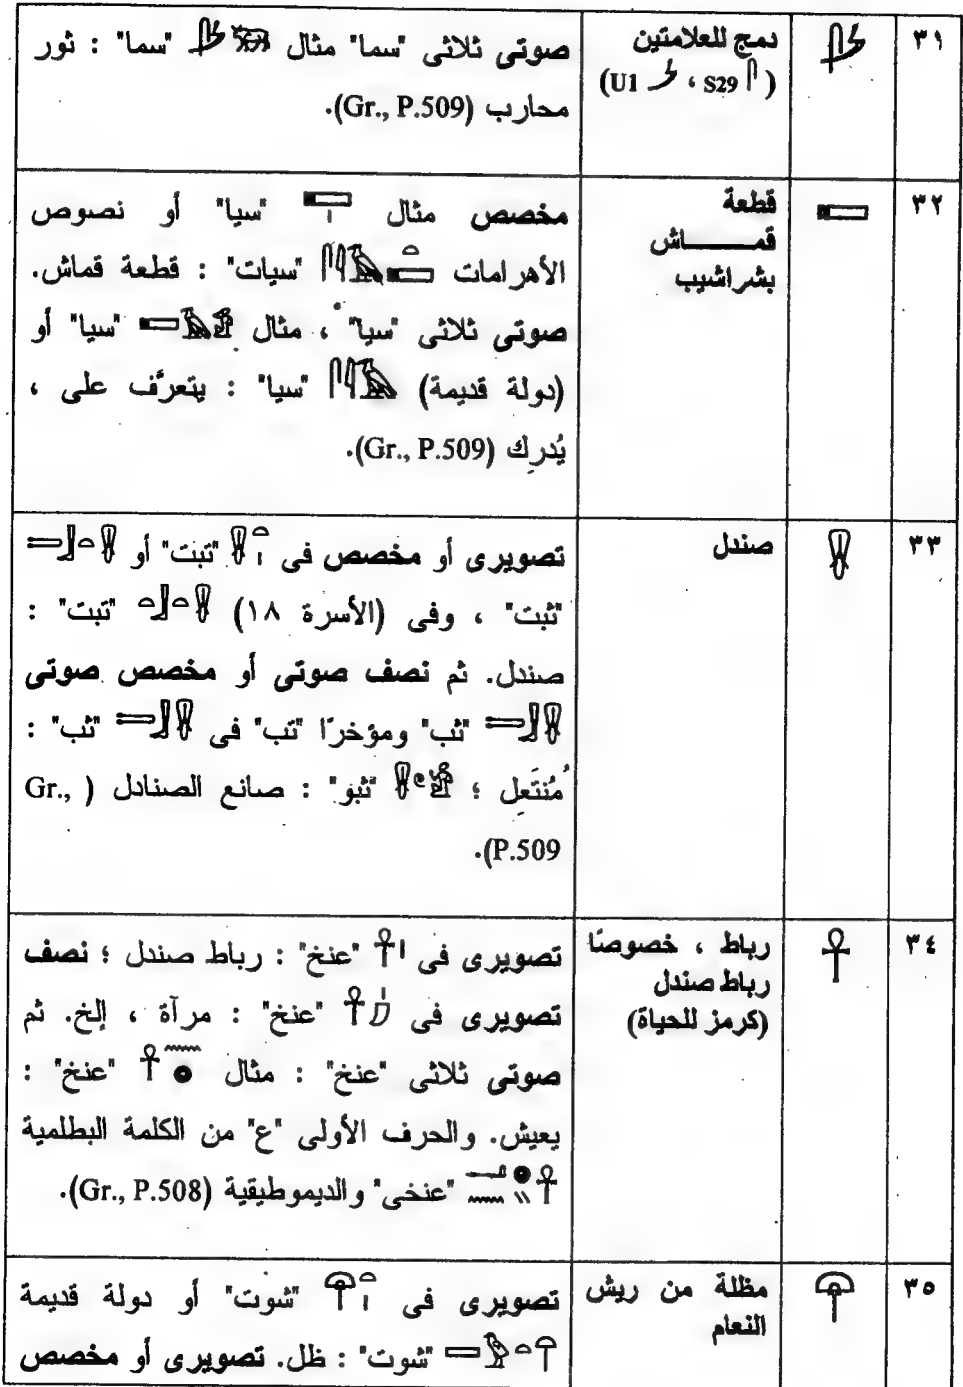 ٣١ دمج للعلامتين صوتى ثلاثى "سما" مثال 𓄅 "سما" : ثور
(𓋴 S29 ، 𓌳 U1) محارب (Gr., P.509).
٣٢ قطعة مخصص مثال "سيا" أو نصوص
قمـــــــاش الأهرامات "سيات" : قطعة قماش.
بشراشيب صوتى ثلاثى "سيا" ، مثال "سيا" أو
(دولة قديمة) "سيا" : يتعرَّف على ،
يُدرِك (Gr., P.509).
٣٣ صندل تصويرى أو مخصص فى "تبت" أو
"ثبت" ، وفى (الأسرة ١٨) "تبت" :
صندل. ثم نصف صوتى أو مخصص صوتى
"ثب" ومؤخرًا "تب" فى "ثب" :
مُنتَعِل ؛ "ثبو" : صانع الصنادل (Gr.,
P.509).
٣٤ رباط ، خصوصًا تصويرى فى 𓋹 "عنخ" : رباط صندل ؛ نصف
رباط صندل تصويرى فى 𓋹 "عنخ" : مرآة ، إلخ. ثم
(كرمز للحياة) صوتى ثلاثى "عنخ" : مثال 𓋹𓈖𓐍 "عنخ" :
يعيش. والحرف الأولى "ع" من الكلمة البطلمية
"عنخى" والديموطيقية (Gr., P.508).
٣٥ مظلة من ريش تصويرى فى "شوت" أو دولة قديمة
النعام "شوت" : ظل. تصويرى أو مخصص